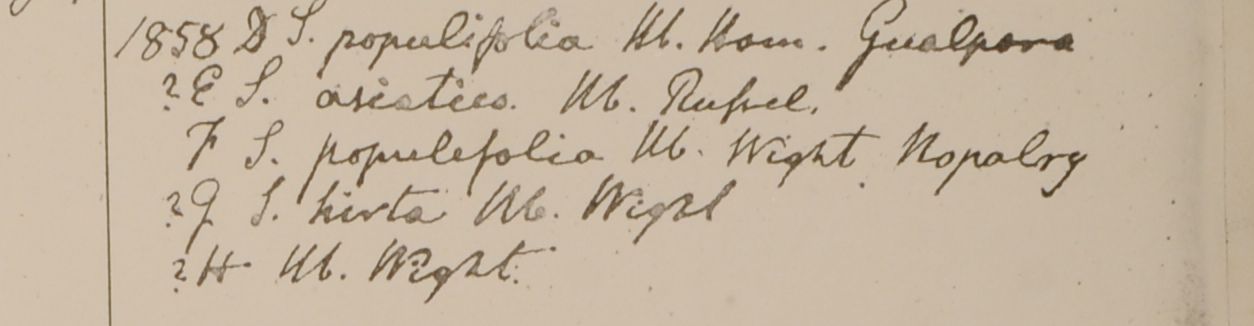 1858 D S. populifolia Hb. Ham. Gualpara
? E S. asiatica. Hb. Russel.
F S. populifolia Hb. Wight
? G S. hirta Hb. Wight
? H Hb. Wight.